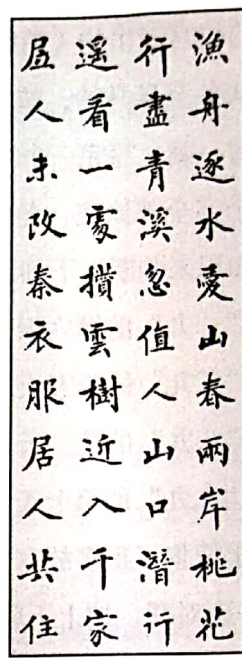 漁舟逐水愛山春兩岸桃花
行盡青溪忽值人山口潛行
遥看一處攢雲樹近入千家
居人未改秦衣服居人共住